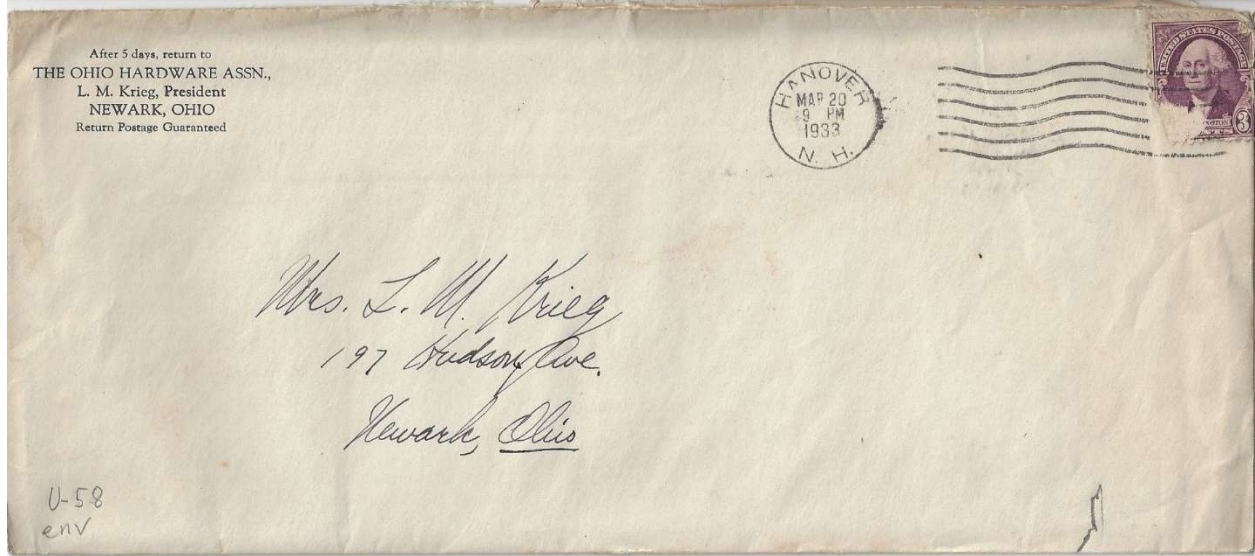 After 5 days, return to
THE OHIO HARDWARE ASSN.,
L. M. Krieg, President
NEWARK, OHIO
Return Postage Guaranteed
HANOVER
MAR 20
9 PM
1933
N. H.
UNITED STATES POSTAGE
3
Mrs. L. M. Krieg
197 Hudson Ave.
Newark, Ohio
U-58
env